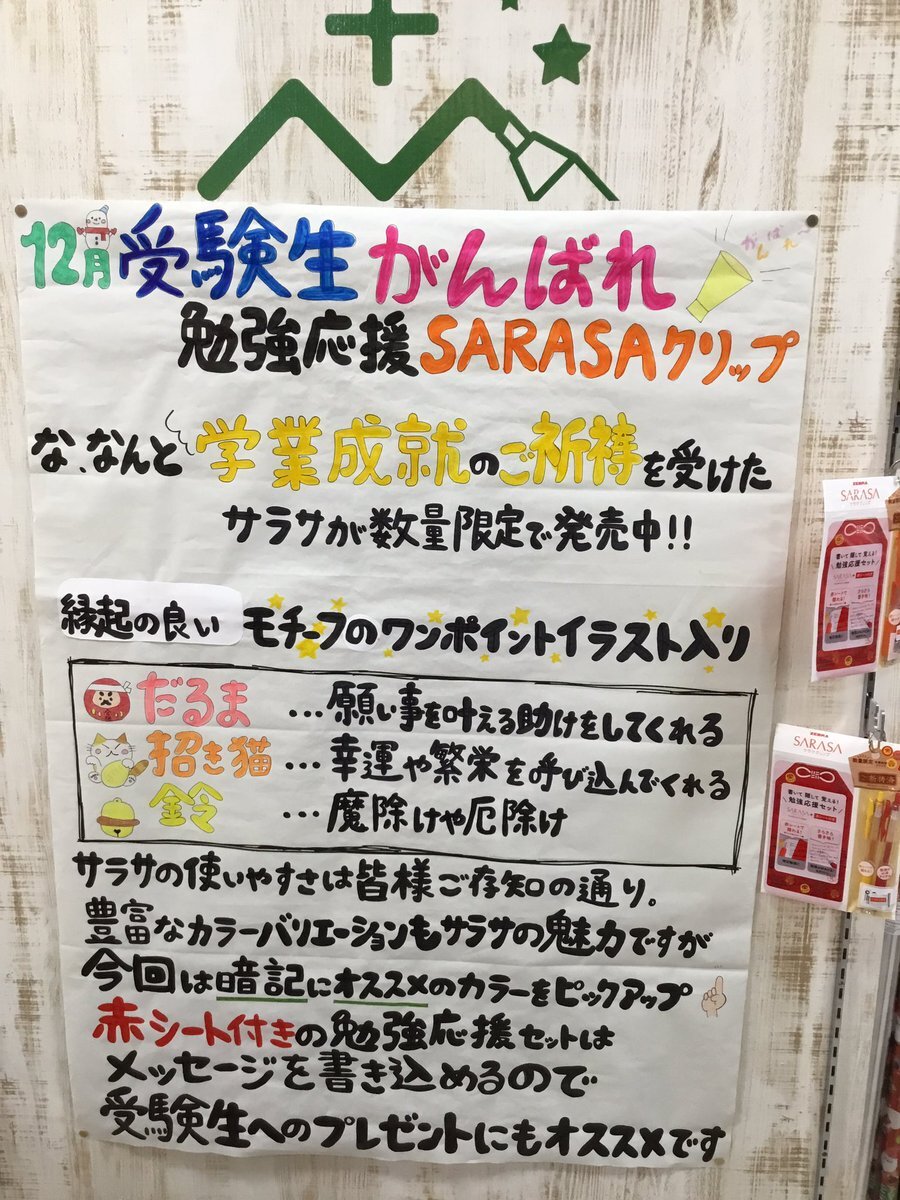 12月 受験生 がんばれ
がんばれ〜
勉強応援 SARASAクリップ
な、なんと 学業成就のご祈祷を受けた
サラサが数量限定で発売中!!
縁起の良い モチーフのワンポイントイラスト入り
だるま …願い事を叶える助けをしてくれる
招き猫 …幸運や繁栄を呼び込んでくれる
鈴 …魔除けや厄除け
サラサの使いやすさは皆様ご存知の通り。
豊富なカラーバリエーションもサラサの魅力ですが
今回は暗記にオススメのカラーをピックアップ
赤シート付きの勉強応援セットは
メッセージを書き込めるので
受験生へのプレゼントにもオススメです
ZEBRA
SARASA
書いて隠して覚える!
勉強応援セット
ZEBRA
SARASA
書いて隠して覚える!
勉強応援セット